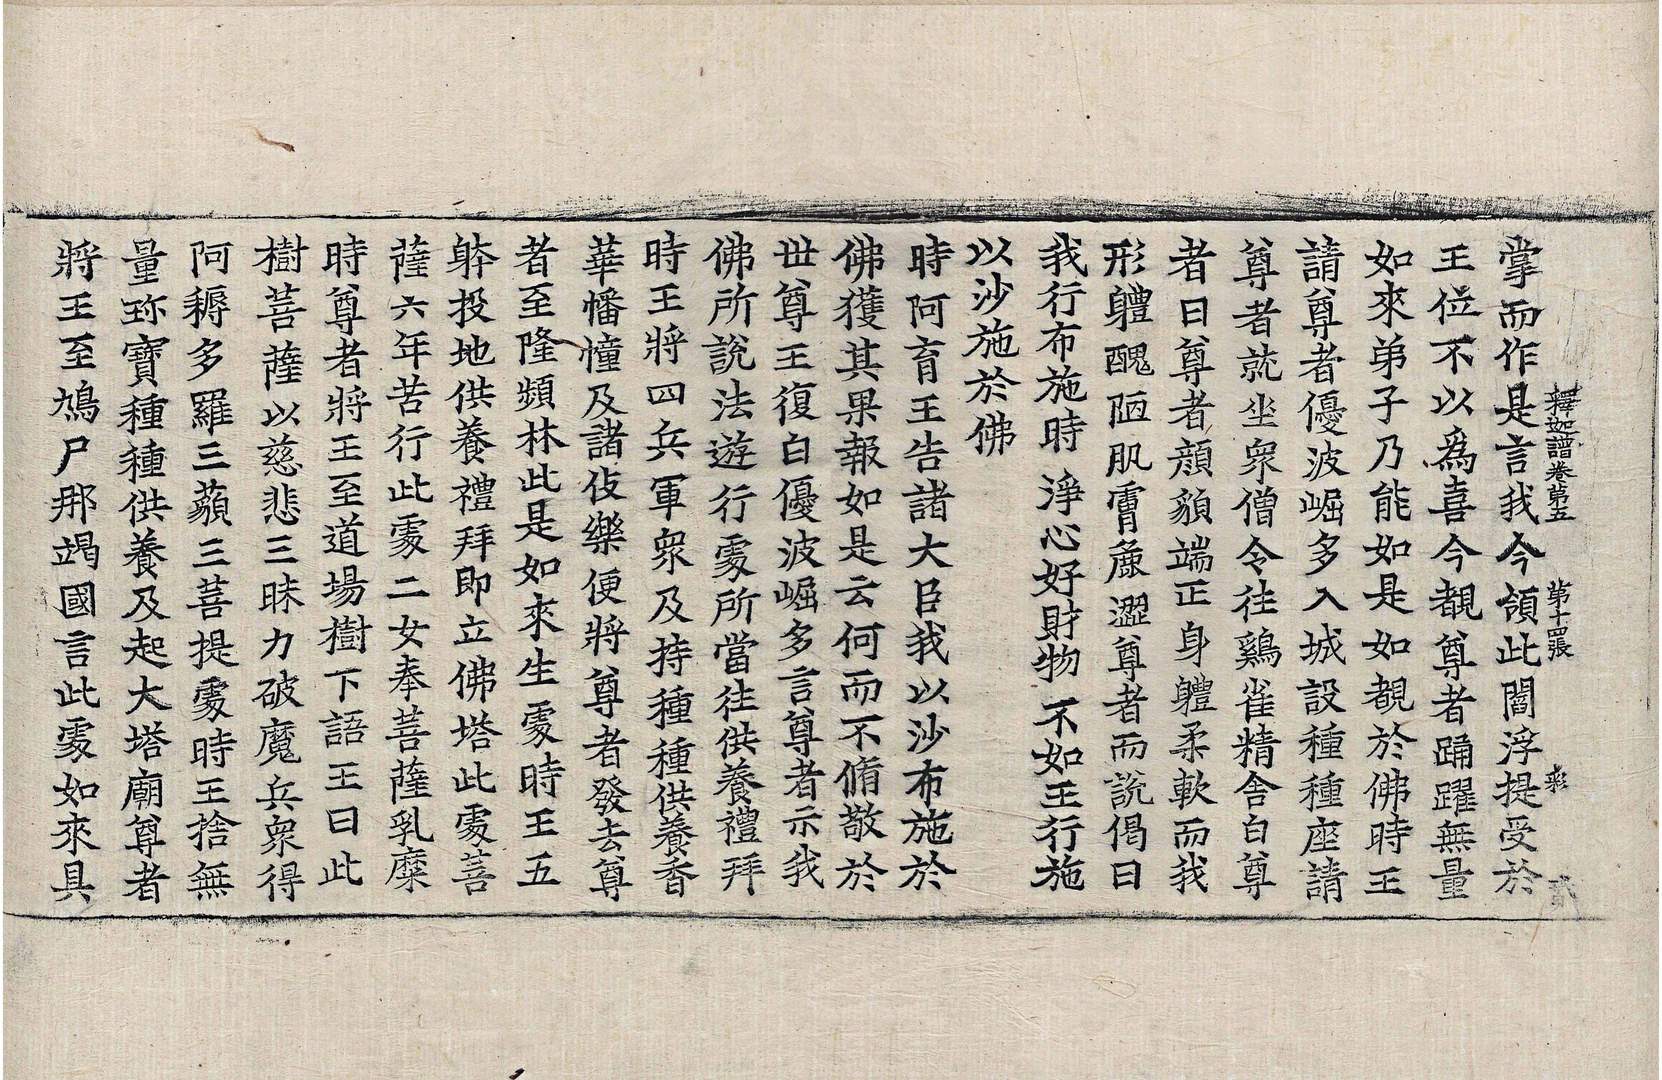 釋迦譜卷第五　第十四張　彩
掌而作是言我今領此閻浮提受於
王位不以爲喜今覩尊者踊躍無量
如來弟子乃能如是如覩於佛時王
請尊者優波崛多入城設種種座請
尊者就坐衆僧令往鷄雀精舍白尊
者曰尊者顔貌端正身軆柔軟而我
形軆醜陋肌膚麁澀尊者而說偈曰
我行布施時　淨心好財物　不如王行施
以沙施於佛
時阿育王告諸大臣我以沙布施於
佛獲其果報如是云何而不脩敬於
世尊王復白優波崛多言尊者示我
佛所說法遊行處所當往供養禮拜
時王將四兵軍衆及持種種供養香
華幡幢及諸伎樂便將尊者發去尊
者至隆頻林此是如來生處時王五
躰投地供養禮拜即立佛塔此處菩
薩六年苦行此處二女奉菩薩乳糜
時尊者將王至道場樹下語王曰此
樹菩薩以慈悲三昧力破魔兵衆得
阿耨多羅三藐三菩提處時王捨無
量珎寶種種供養及起大塔廟尊者
將王至鳩尸那竭國言此處如來具